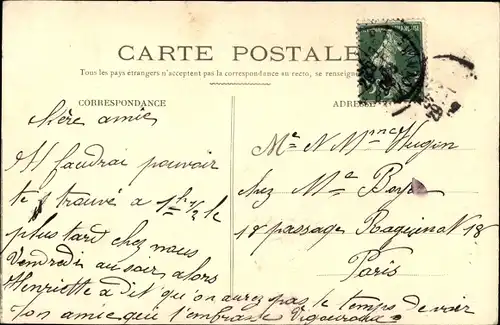 CARTE POSTALE
Tous les pays étrangers n'acceptent pas la correspondance au recto, se renseigner
CORRESPONDANCE
ADRESSE
Chère amie
Il faudrai pouvoir
te trouvé a 1h 1/2 le
plus tard chez nous
Vendredi au soir alors
Henriette a dit qu'on aurez pas le temps de voir
Ton amie qui t'embrasse Vigouroux
Me N Hugin
chez Me
18 passage Raguinot 18
Paris